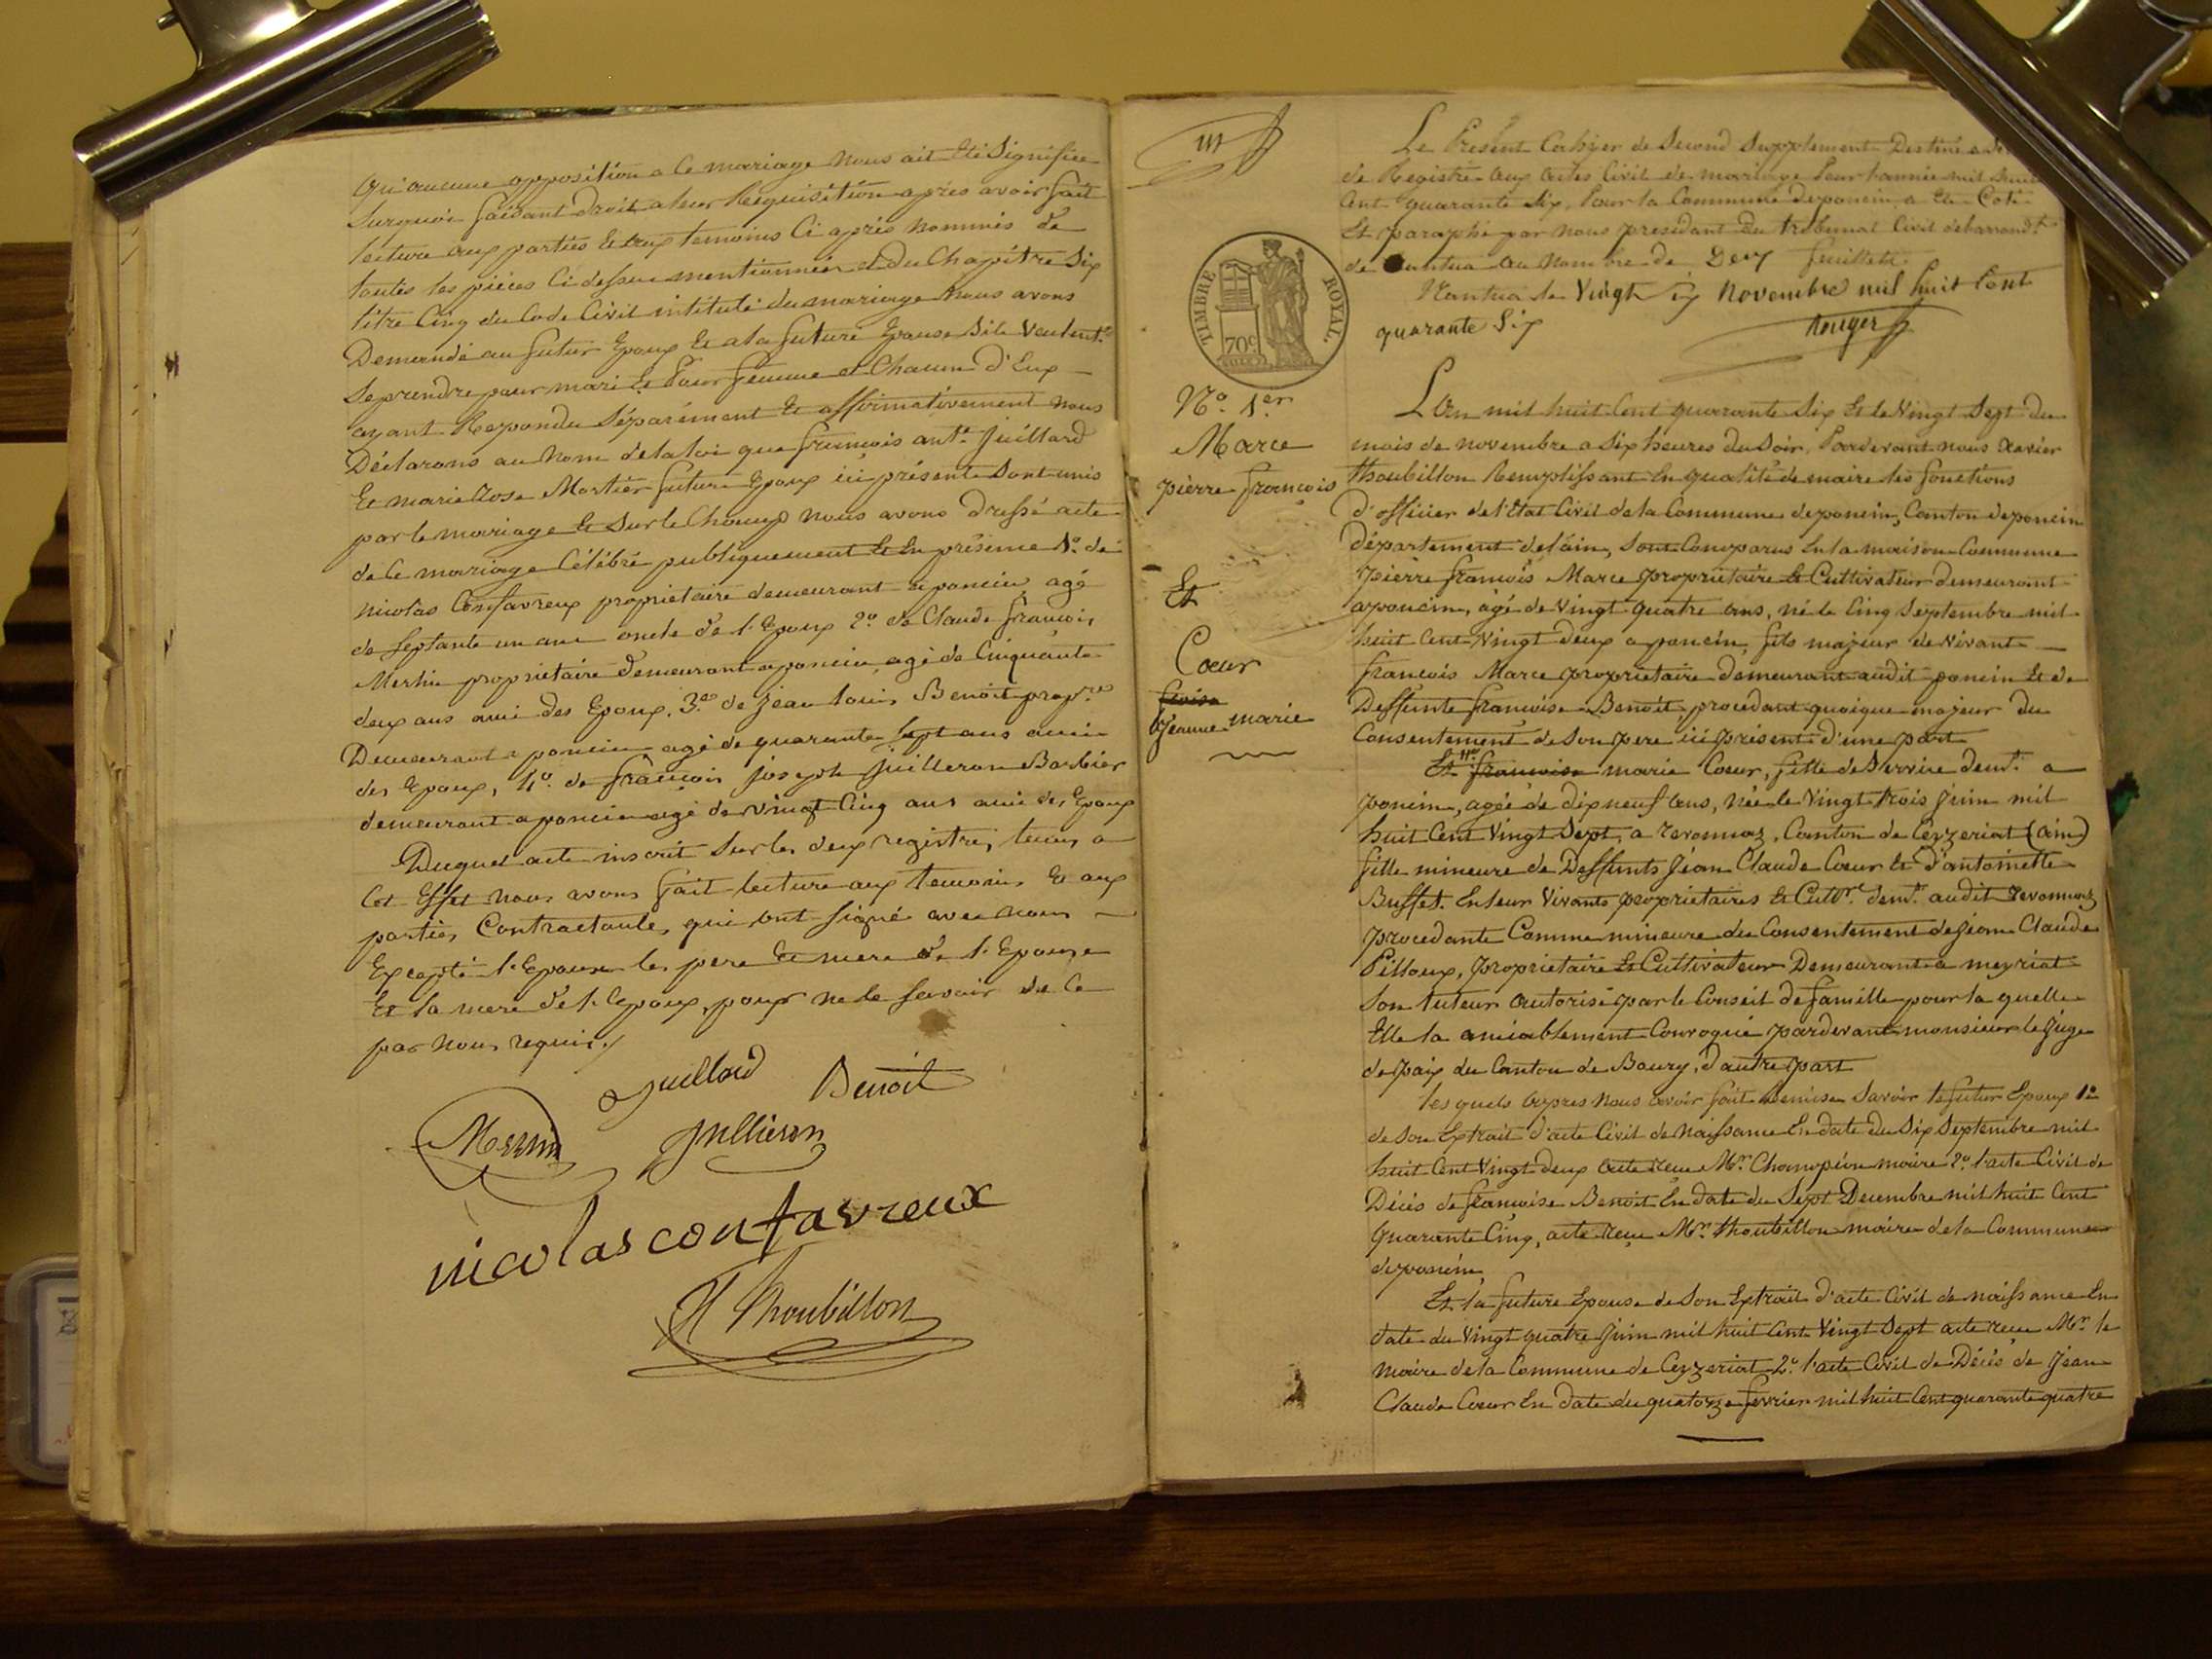 qu'aucune opposition a ce mariage nous ait été signifiée
surquoi faisant droit a leur Requisition apres avoir fait
lecture aux parties et aux temoins ci après nommés de
toutes les pièces ci dessus mentionnées et du Chapitre Six
titre Cinq du Code Civil intitulé du mariage nous avons
Demandé au futur Epoux et a la future Epouse S'ils veulent
se prendre pour mari et Pour femme et Chacun d'Eux
ayant Repondu Séparément et affirmativement nous
Déclarons au nom de la loi que françois ant.e Juillard
Et marie Rose Mortier future Epoux ici présente sont unis
par le mariage et Sur le Champ nous avons dressé acte
de ce mariage Célébré publiquement et En présence 1.o de
nicolas Confavreux proprietaire demeurant a poncin, agé
de septante un ans oncle de l'Epoux 2.o de Claude françois
Merlin proprietaire demeurant a poncin agé de Cinquante
deux ans ami des Epoux, 3.o de Jean louis Benoit prop.re
Demeurant a poncin agé de quarante sept ans ami
des Epoux, 4.o de françois joseph juilleron Barbier
demeurant a poncin agé de vingt Cinq ans ami des Epoux
Duquel acte inscrit Sur les deux registres tenus a
Cet Effet nous avons fait lecture aux temoins et aux
parties Contractante, qui ont signé avec nous
Excepté l'Epouse les pere et mere de l'Epouse
Et la mere de l'Epoux, pour ne le savoir de ce
par nous requis./
Juillard Benoit
Jullieron
nicolas confavreux
X Thoubillon
Le Présent Cahyer de Second Supplement Destiné a
de Registre aux actes Civil de mariage Pour l'année mil huit
Cent quarante Six, Pour la Commune de poncin, a Eté Coté
Et paraphé par nous president du tribunal Civil de l'arrond.t
de nantua au nombre de Deux feuillets.
Nantua le Vingt Six Novembre mil huit Cent
quarante Six
TIMBRE ROYAL.
70c
N.o 1.er
Marce
pierre françois
Et
Cœur
Jeanne marie
L'An mil huit Cent quarante Six Et le Vingt Sept du
mois de novembre a Six heures du Soir, Pardevant nous Xavier
Thoubillon Remplissant En qualité de maire les fonctions
d'officier de l'Etat Civil de la Commune de poncin, Canton de poncin
département de l'ain, Sont Comparus En la maison Commune
pierre françois Marce proprietaire et Cultivateur demeurant
a poncin, agé de vingt quatre ans, né le Cinq Septembre mil
huit Cent vingt deux a poncin, fils majeur de vivant
françois Marce proprietaire demeurant audit poncin Et de
Deffunte françoise Benoit, procedant quoique majeur du
Consentement de Son pere ici présent d'une part
Et françoise marie Cœur, fille de Service dem.t a
poncin, agée de dix neuf ans, née le Vingt trois Juin mil
huit Cent Vingt Sept, a revonnaz, Canton de Ceyzeriat (ain)
fille mineure de Deffunts Jean Claude Cœur Et d'antoinette
Buffet. En leur Vivants proprietaires Et Cult.rs dem.t audit revonnaz
procedante Comme mineure du Consentement de Jean Claude
Pilloux, proprietaire Et Cultivateur Demeurant a meyriat
Son tuteur autorisé par le Conseil de famille pour la quelle
Elle la amiablement Convoqué pardevant monsieur le Juge
de paix du Canton de Bourg, d'autre part
les quels apres nous avoir fait Remise Savoir le futur Epoux 1.o
de Son Extrait d'acte Civil de Naissance En date du Six Septembre mil
huit Cent Vingt deux acte recu M.r Champion maire 2.o l'acte Civil de
Décés de françoise Benoit En date du Sept Decembre mil huit Cent
quarante Cinq, acte recu M.r Thoubillon maire de la Commune
de poncin
Et la future Epouse de Son Extrait d'acte Civil de naissance En
date du Vingt quatre Juin mil huit Cent Vingt Sept acte recu M.r le
maire de la Commune de Ceyzeriat 2.o l'acte Civil de Décés de Jean
Claude Cœur En date du quatorze fevrier mil huit Cent quarante quatre